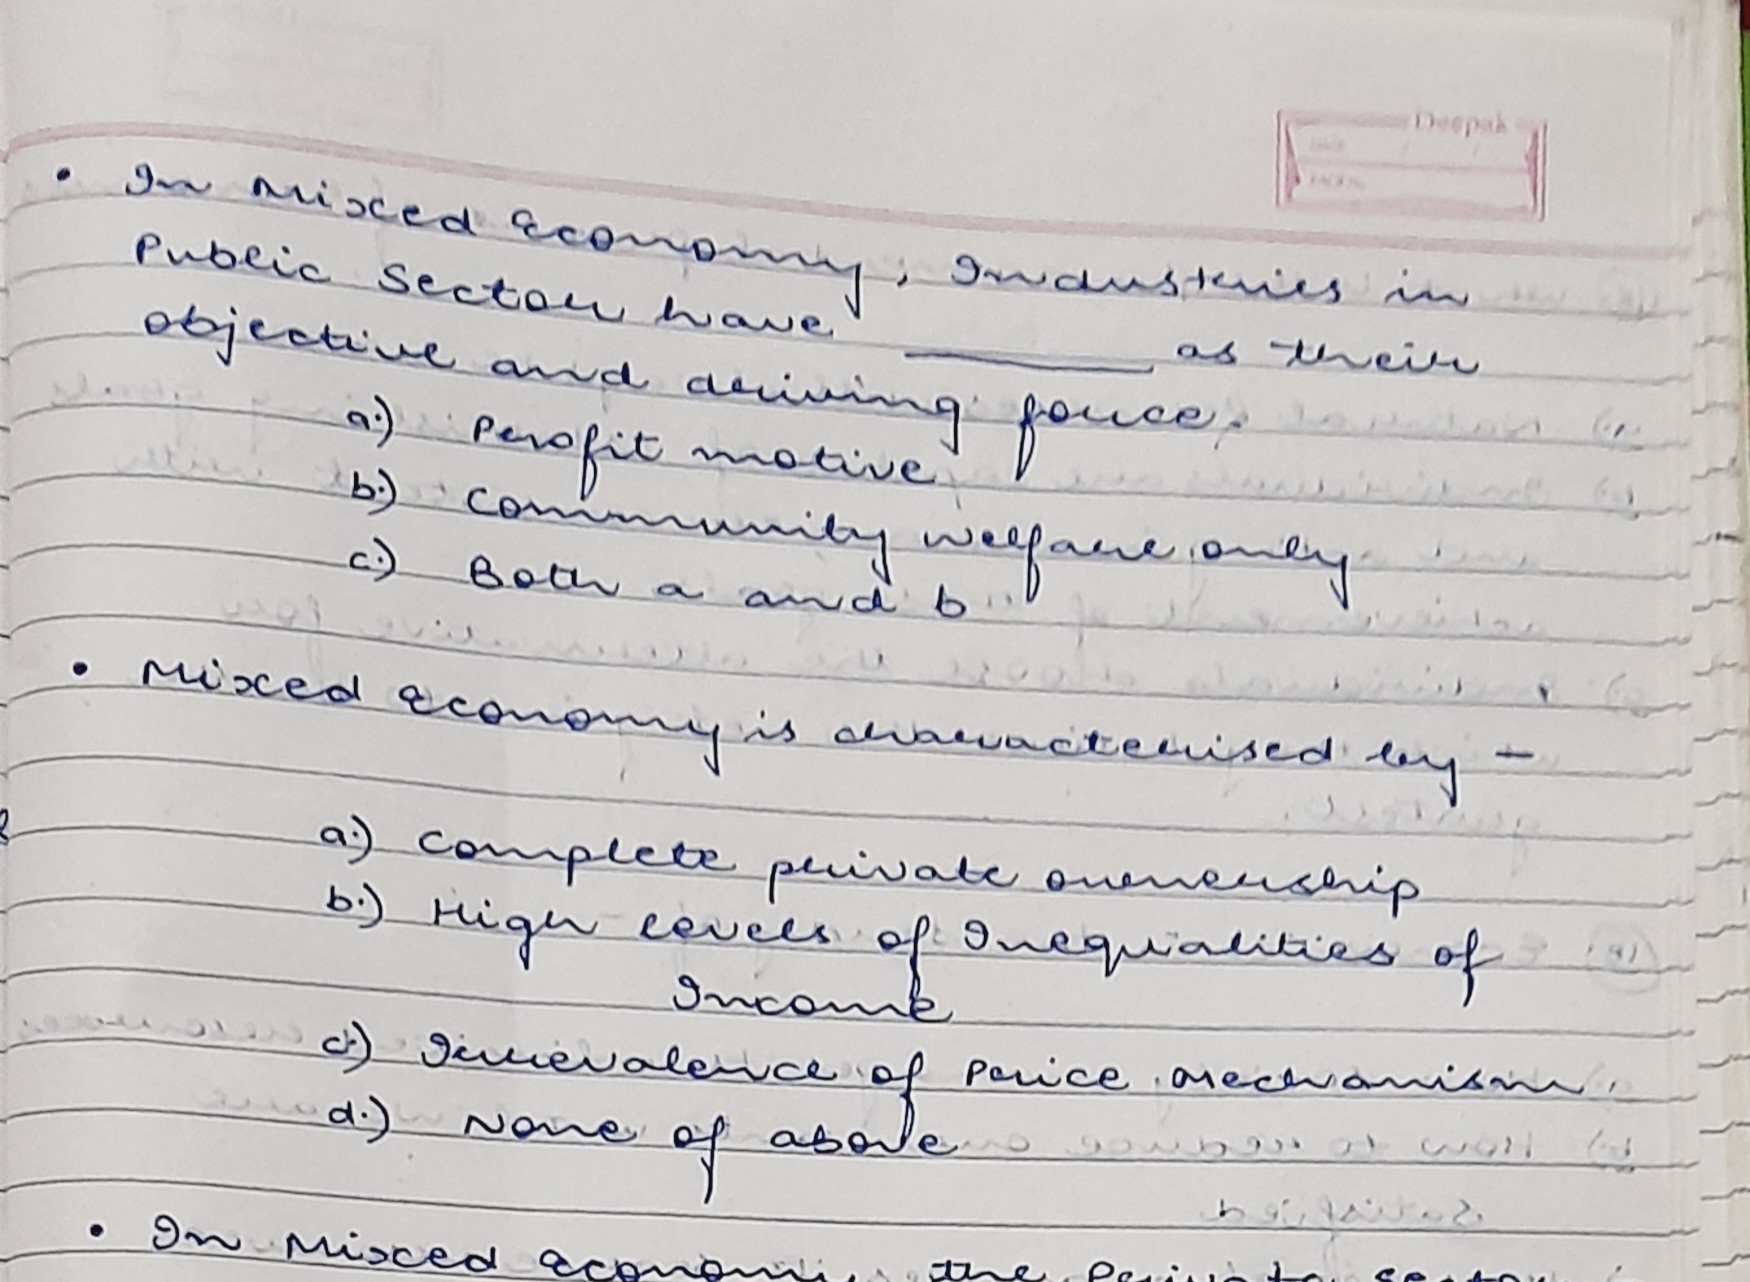 Deepak
• In Mixed Economy, Industries in
Public Sector have ______ as their
objective and driving force.
a.) Profit motive
b.) Community welfare only
c.) Both a and b
• Mixed Economy is characterised by -
a.) Complete private ownership
b.) High levels of Inequalities of
Income
c.) Irrevalence of Price Mechanism.
d.) None of above
• In Mixed Economy, the Private sector